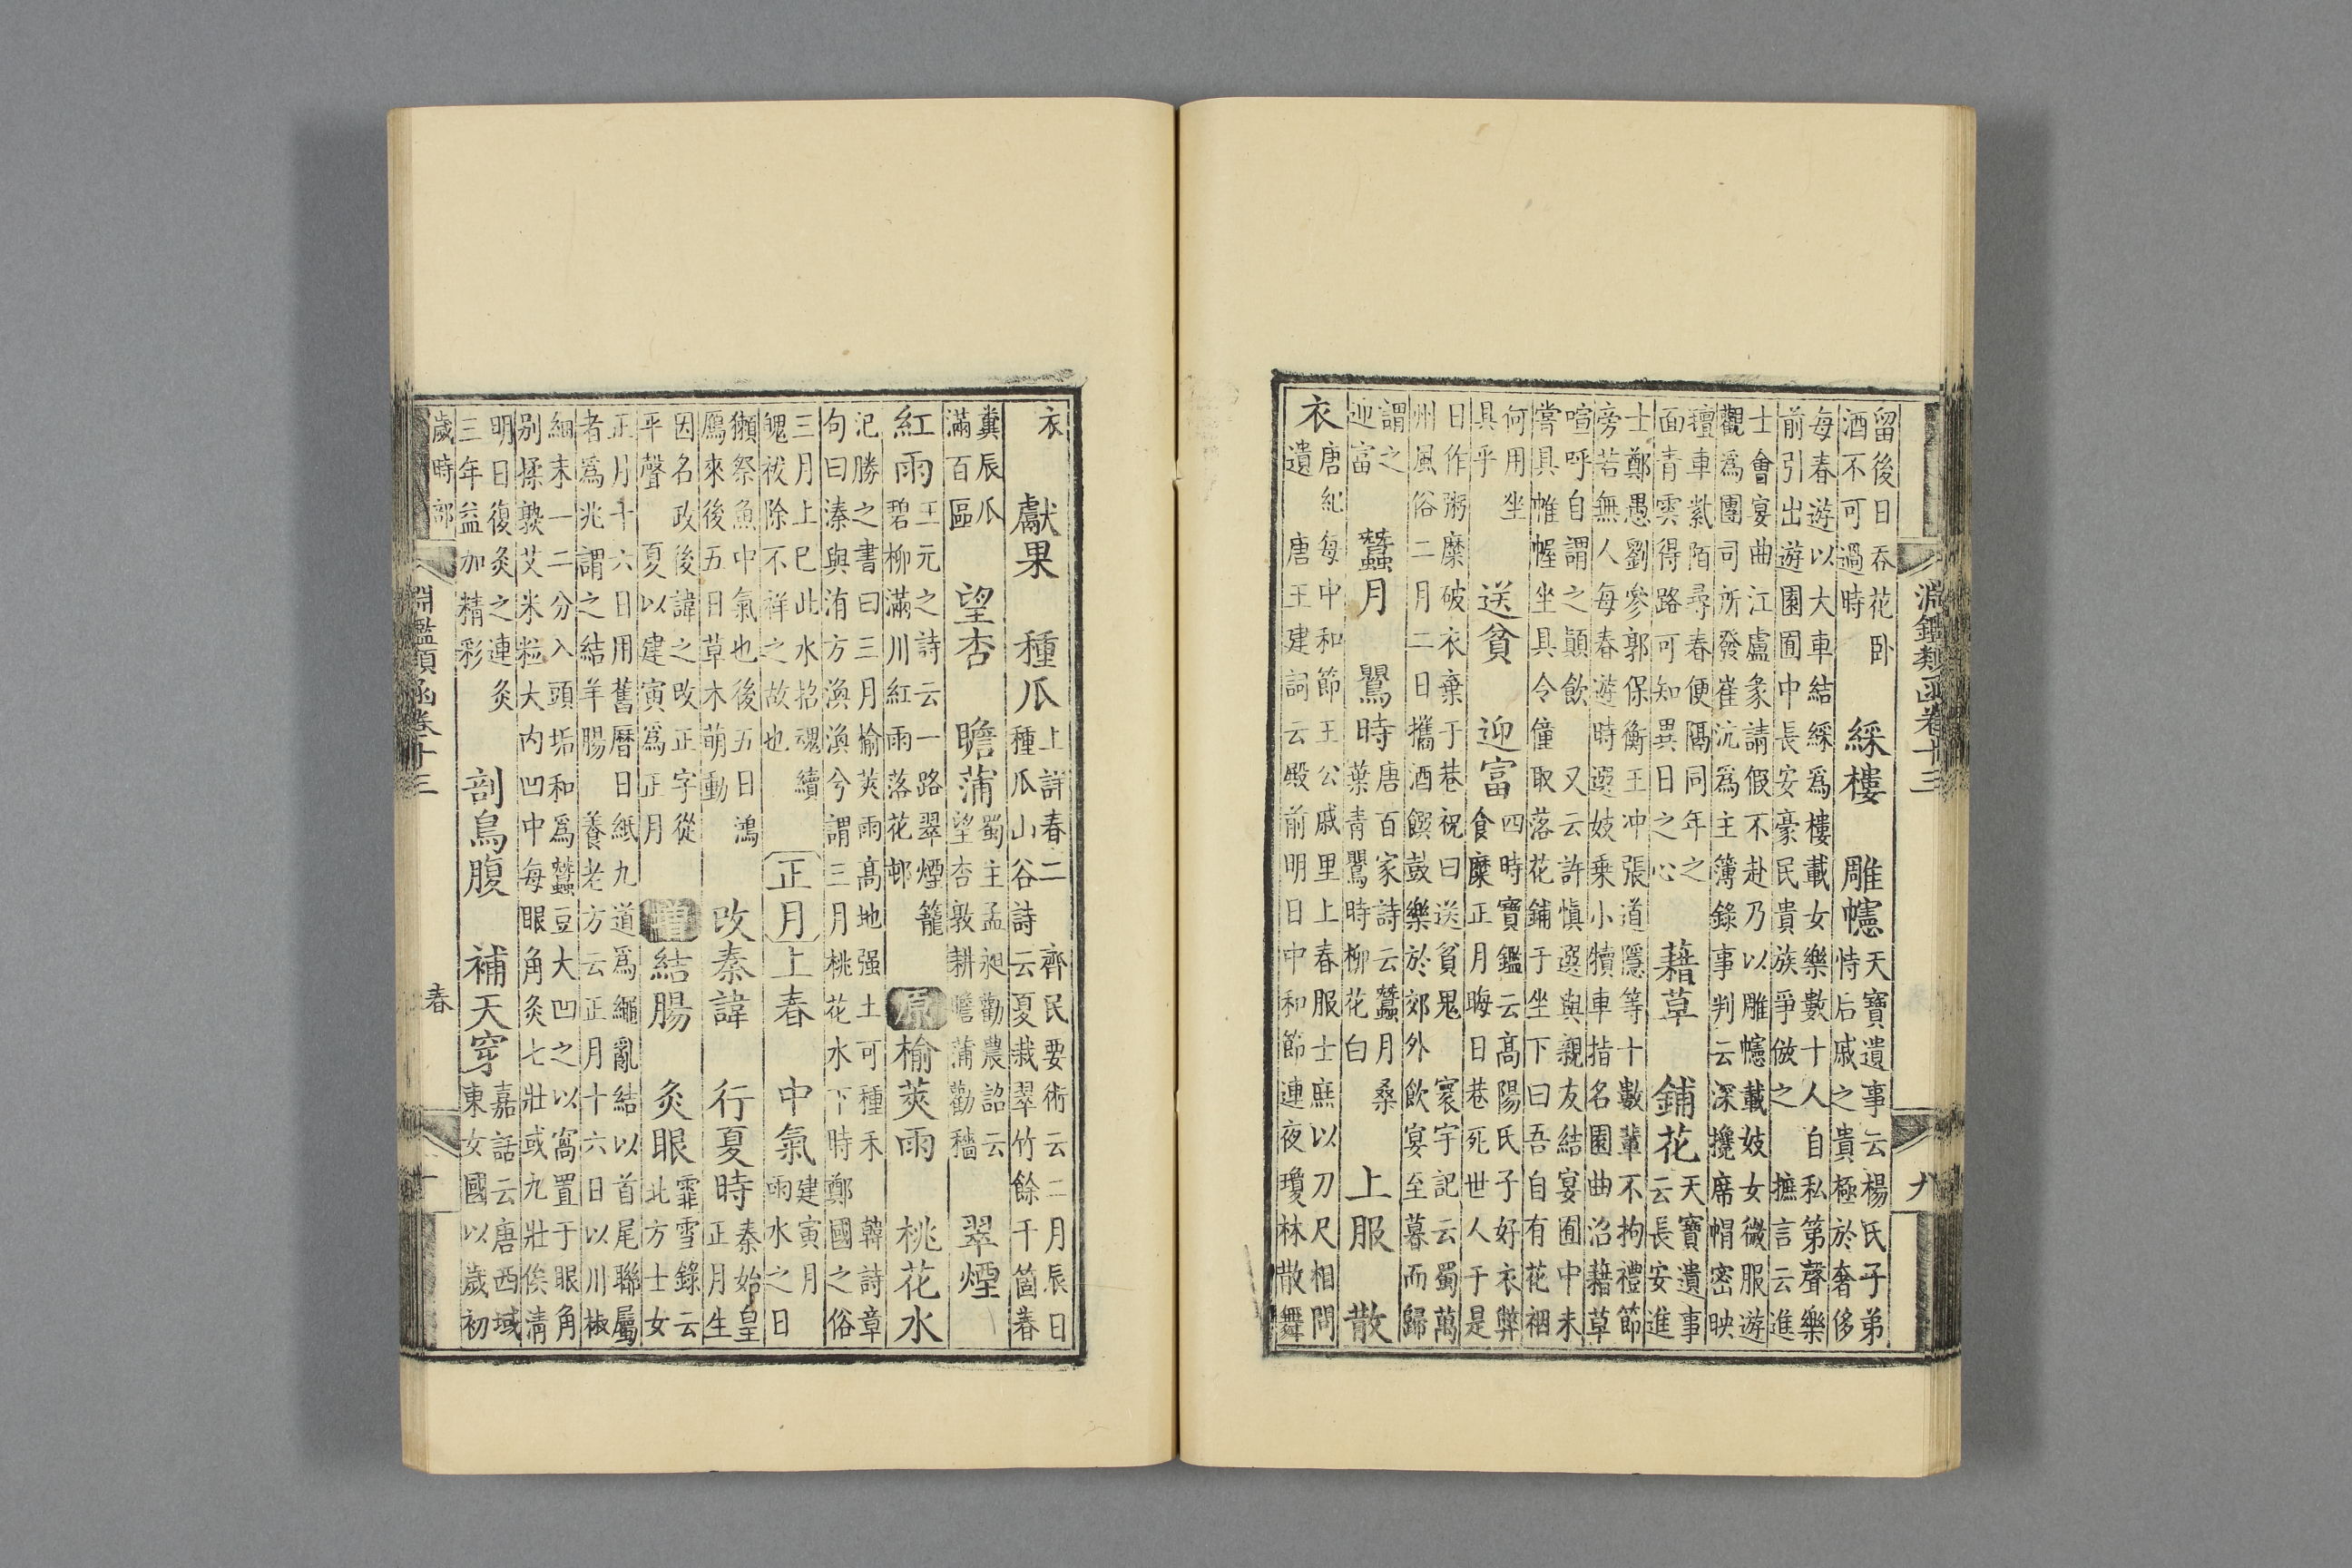 淵鑑類函卷十三 九
留後日吞花卧
酒不可過時
綵樓 雕幰
天寶遺事云楊氏子弟
恃后戚之貴極於奢侈
每春遊以大車結綵爲樓載女樂數十人自私第聲樂
前引出遊園囿中長安豪民貴族爭倣之 摭言云進
士會宴曲江盧彖請假不赴乃以雕幰載妓女微服遊
觀爲團司所發崔沆爲主簿錄事判云深攙席帽密映
氊車紫陌尋春便隔同年之
面青雲得路可知異日之心
藉草 鋪花
天寶遺事
云長安進
士鄭愚劉參郭保衡王冲張道隱等十數輩不拘禮節
旁若無人每春遊時選妓乗小犢車指名園曲沼藉草
喧呼自謂之顛飲 又云許慎選與親友結宴囿中未
嘗具帷幄坐具令僮取落花鋪于坐下曰吾自有花裀
何用坐
具乎
送貧 迎富
四時寶鑑云高陽氏子好衣弊
食糜正月晦日巷死世人于是
日作粥糜破衣棄于巷祝曰送貧鬼 寰宇記云蜀萬
州風俗二月二日攜酒饌鼓樂於郊外飲宴至暮而歸
謂之
迎富
蠶月 鸎時
唐百家詩云蠶月桑
葉青鸎時柳花白
上服 散
衣
唐紀每中和節王公戚里上春服士庶以刀尺相問
遺 唐王建詞云殿前明日中和節連夜瓊林散舞
衣
獻果 種瓜
上詳春二 齊民要術云二月辰日
種瓜山谷詩云夏栽翠竹餘千箇春
糞辰瓜
滿百區
望杏 瞻蒲
蜀主孟昶勸農詔云
望杏敦耕瞻蒲勸穡
翠煙
紅雨
王元之詩云一路翠煙籠
碧柳滿川紅雨落花邨
原 榆莢雨 桃花水
氾勝之書曰三月榆莢雨高地强土可種禾 韓詩章
句曰溱與洧方渙渙兮謂三月桃花水下時鄭國之俗
三月上巳此水招魂續
魄祓除不祥之故也
正月 上春 中氣
建寅月
雨水之日
獺祭魚中氣也後五日鴻
鴈來後五日草木萌動
改秦諱 行夏時
秦始皇
正月生
因名政後諱之改正字從
平聲 夏以建寅爲正月
增 結腸 灸眼
霏雪錄云
北方士女
正月十六日用舊曆日紙九道爲繩亂結以首尾聯屬
者爲兆謂之結羊腸 養老方云正月十六日以川椒
細末一二分入頭垢和爲蠶豆大凹之以窩置于眼角
别揉敦艾米粒大内凹中每眼角灸七壯或九壯俟淸
明日復灸之連灸
三年益加精彩
剖鳥腹 補天穿
嘉話云唐西域
東女國以歲初
歲時部 淵鑑類函卷十三 春